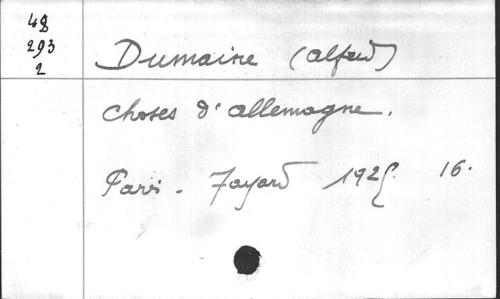 48
293
2
Dumaine (Alfred)
Choses d'Allemagne.
Paris. Fayard 1925. 16.